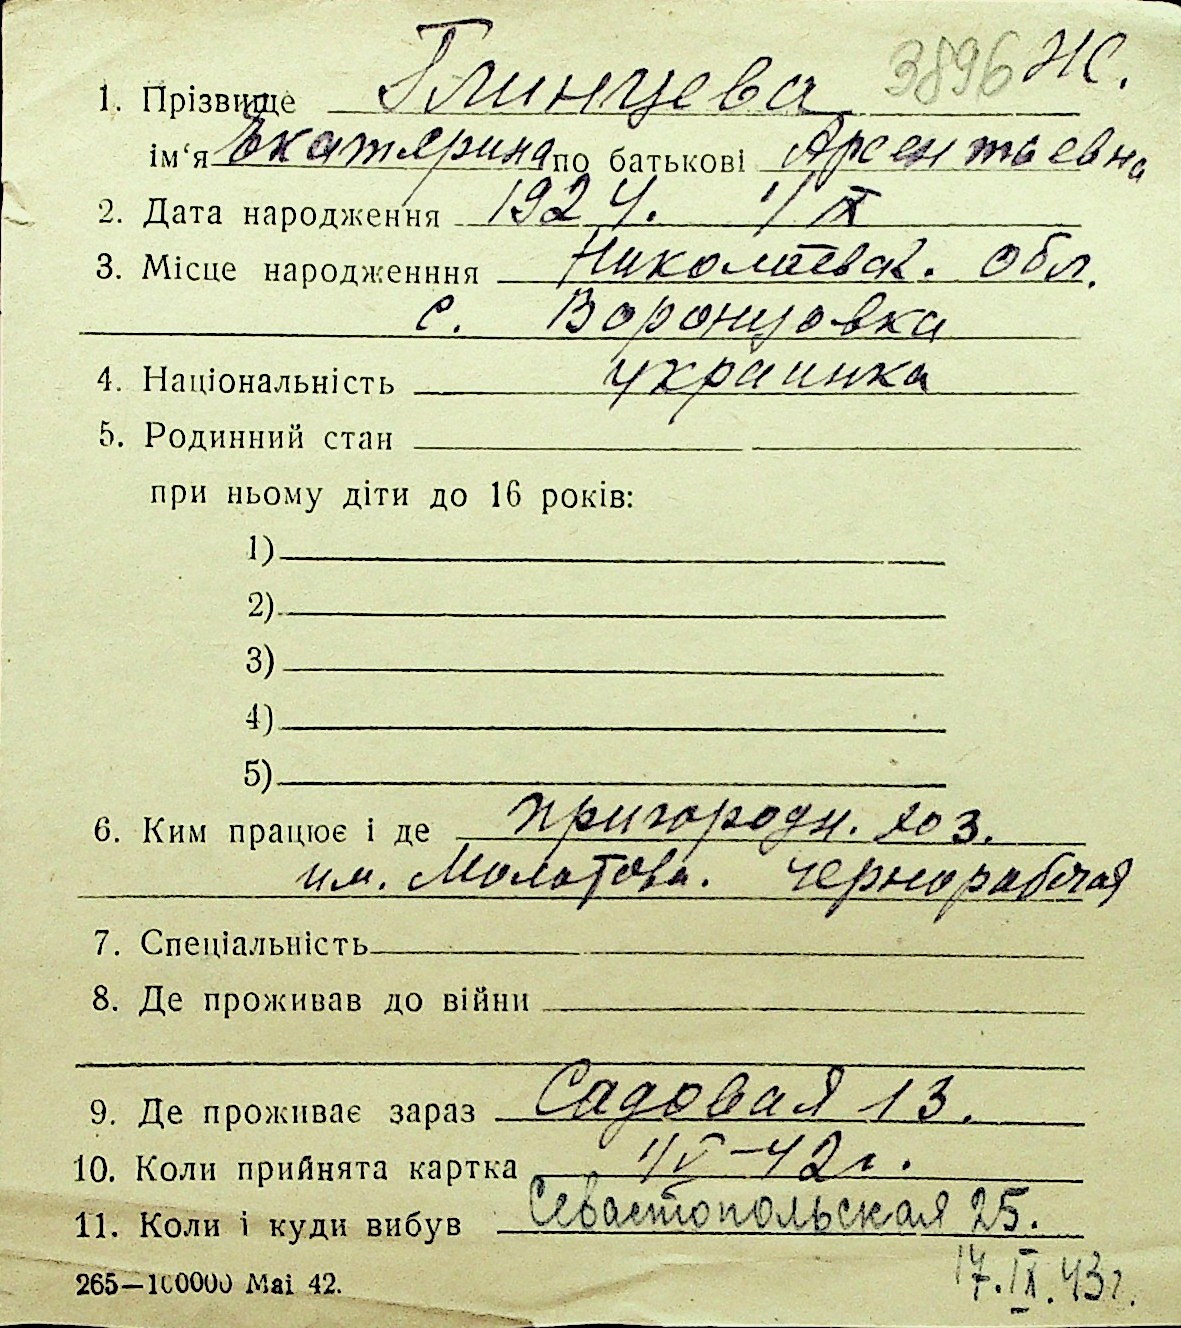 3896 Ж.
1. Прізвище Глинцева
ім'я Екатерина по батькові Арсентьевна
2. Дата народження 1924. 1/X
3. Місце народженння Николаевск. обл.
с. Воронцовка
4. Національність украинка
5. Родинний стан
при ньому діти до 16 років:
1)
2)
3)
4)
5)
6. Ким працює і де пригородн. хоз.
им. Молотова. чернорабочая
7. Спеціальність
8. Де проживав до війни
9. Де проживає зараз Садовая 13.
10. Коли прийнята картка 1/V-42г.
11. Коли і куди вибув Севастопольская 25.
17.IX.43г.
265—100000 Mai 42.